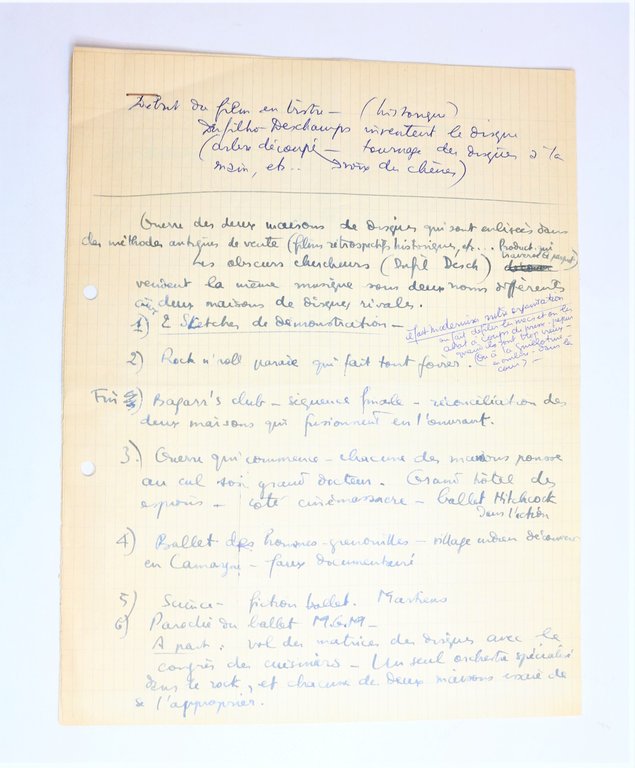 Début du film en bistre — (historique)
Dufilho-Deschamps inventent le disque
(arbre découpé — tournage des disques à la
main, etc.. voix des chênes)
Guerre des deux maisons de disques qui sont enlisées dans
des méthodes antiques de vente (films rétrospectifs historiques, etc... Product. qui
traversent et payent)
Les obscurs chercheurs (Dufil Desch)
vendent la même musique sous deux noms différents
aux deux maisons de disques rivales.
1) 2 Sketches de démonstration —
il faut moderniser notre organisation
on fait défiler les vocis et on les
abat à coups de
quand ils sont trop vieux —
(on a la guillotine
à dans la
cour) —
2) Rock n' roll parade qui fait tout foirer.
Fin Bagarr's club — séquence finale — réconciliation des
deux maisons qui fusionnent en l'ouvrant.
3.) Guerre qui commence — chacune des maisons pousse
au cul son grand docteur. Grand hôtel des
espions — côté cinémassacre — ballet Hitchcock
dans l'action
4) Ballet des hommes-grenouilles — village indien découvert
en Camargue — faux documentaire
5) Science-fiction ballet. Martiens
6) Parodie du ballet M.G.M —
A part : vol des matrices des disques avec le
congrès des cuisiniers — Un seul orchestre spécialisé
dans le rock, et chacune de deux maisons essaie de
se l'approprier.